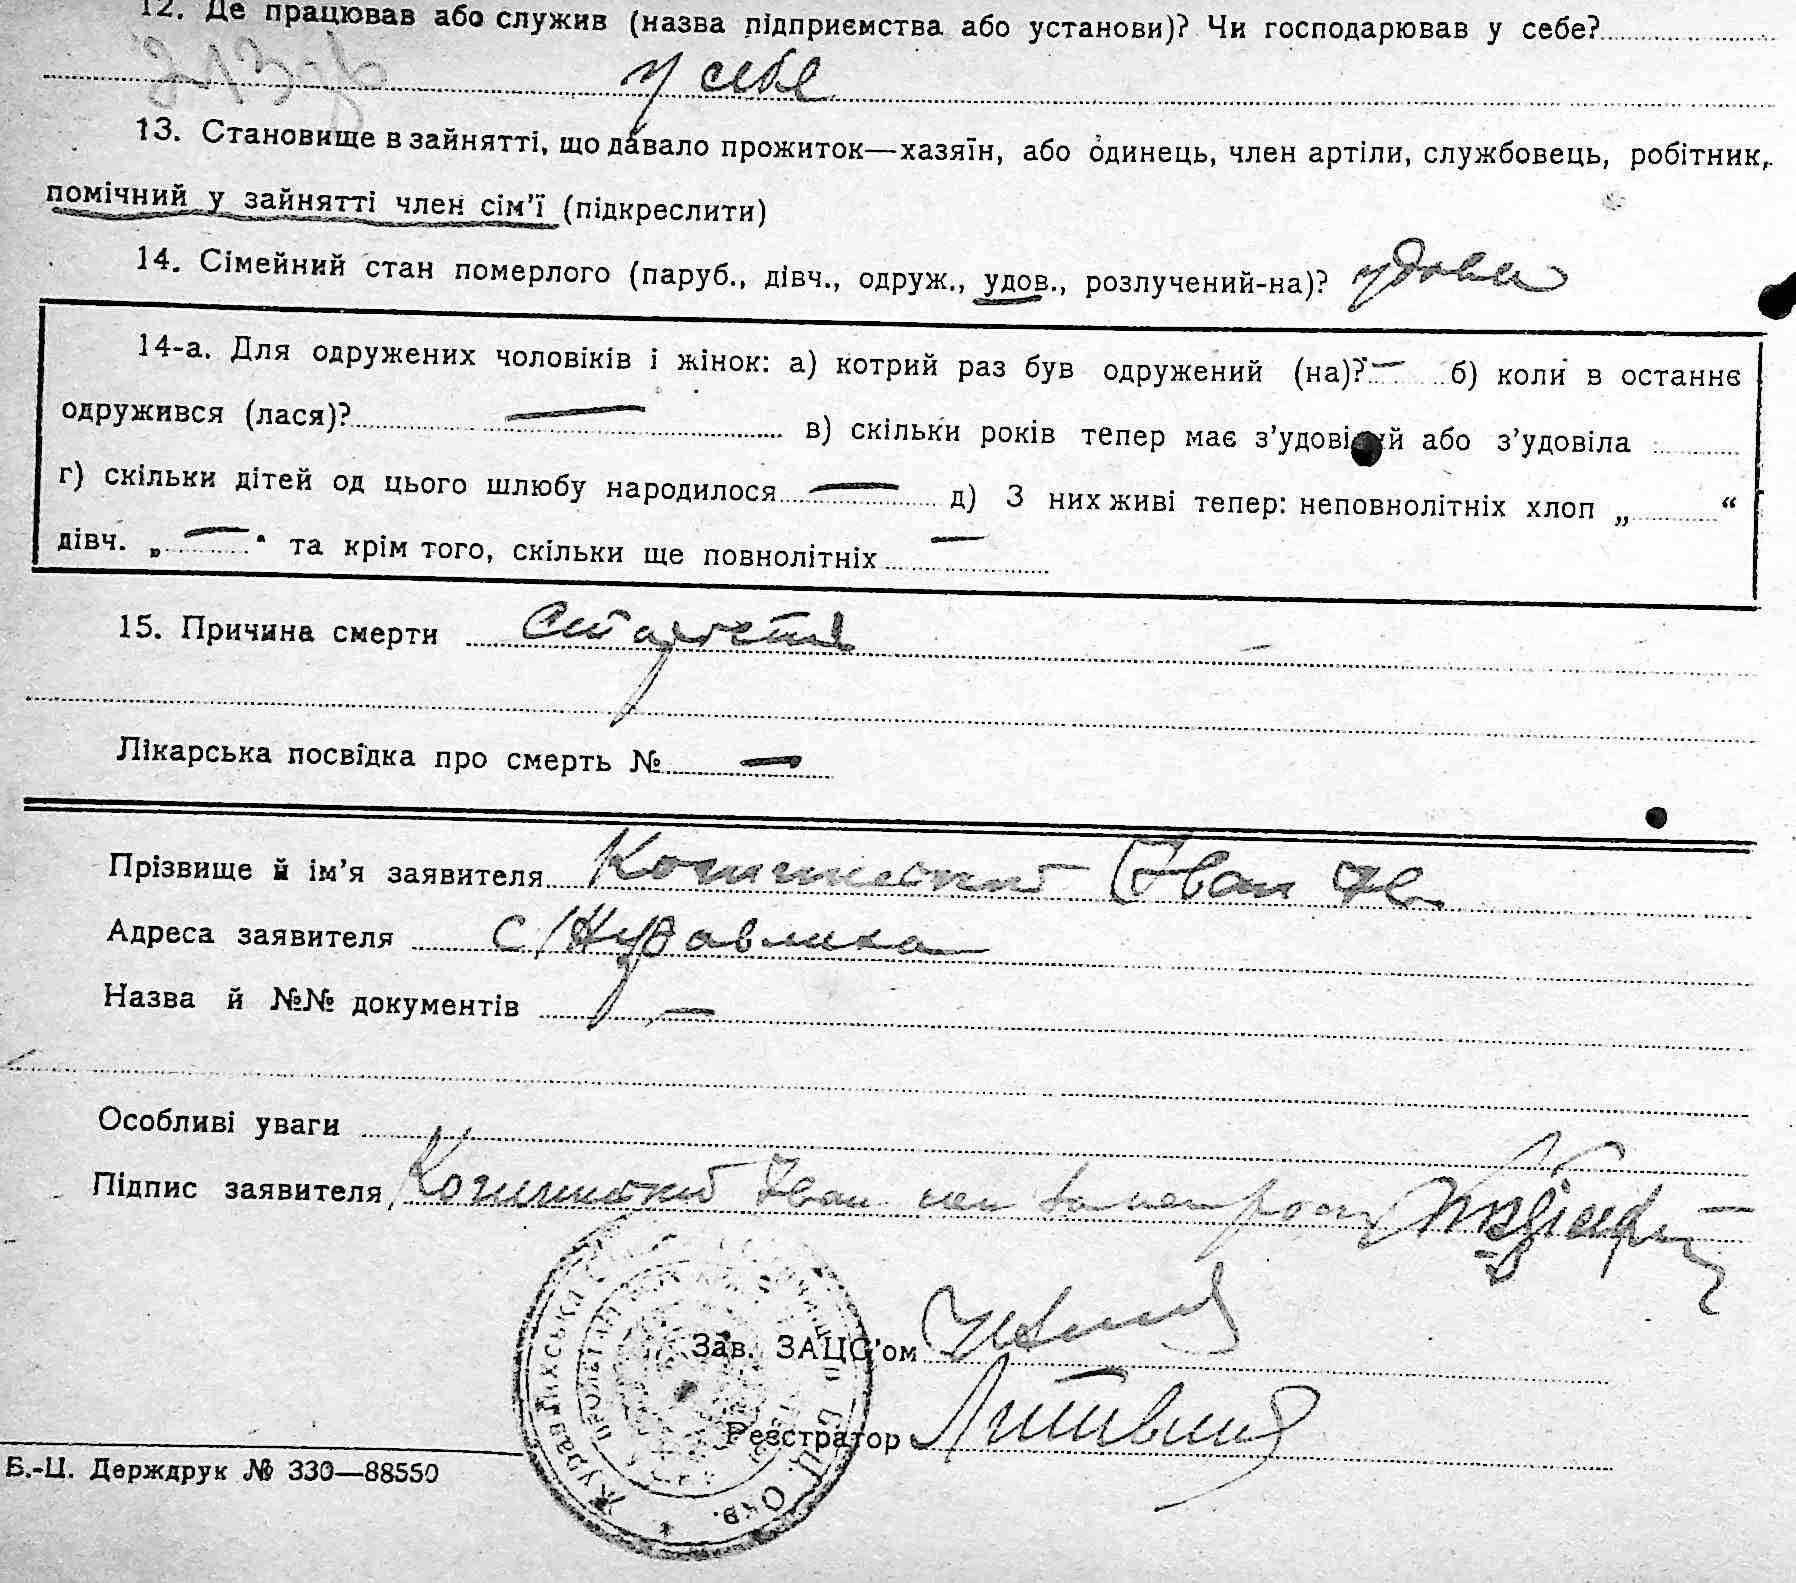 12. Де працював або служив (назва підприємства або установи)? Чи господарював у себе?
у себе
13. Становище в зайнятті, що давало прожиток—хазяїн, або одинець, член артіли, службовець, робітник,
помічний у зайнятті член сім'ї (підкреслити)
14. Сімейний стан померлого (паруб., дівч., одруж., удов., розлучений-на)? удова
14-а. Для одружених чоловіків і жінок: а) котрий раз був одружений (на)? — б) коли в останнє
одружився (лася)? — в) скільки років тепер має з'удовілий або з'удовіла
г) скільки дітей од цього шлюбу народилося — д) З них живі тепер: неповнолітніх хлоп „ “
дівч. „ — “ та крім того, скільки ще повнолітніх —
15. Причина смерти старість
Лікарська посвідка про смерть № —
Прізвище й ім'я заявителя Іван Ив
Адреса заявителя с Журавлиха
Назва й №№ документів —
Особливі уваги
Підпис заявителя Іван
Зав. ЗАЦС'ом
Реєстратор Литвин
Журавлихська Б.-Ц. Окв.
Б.-Ц. Держдрук № 330—88550